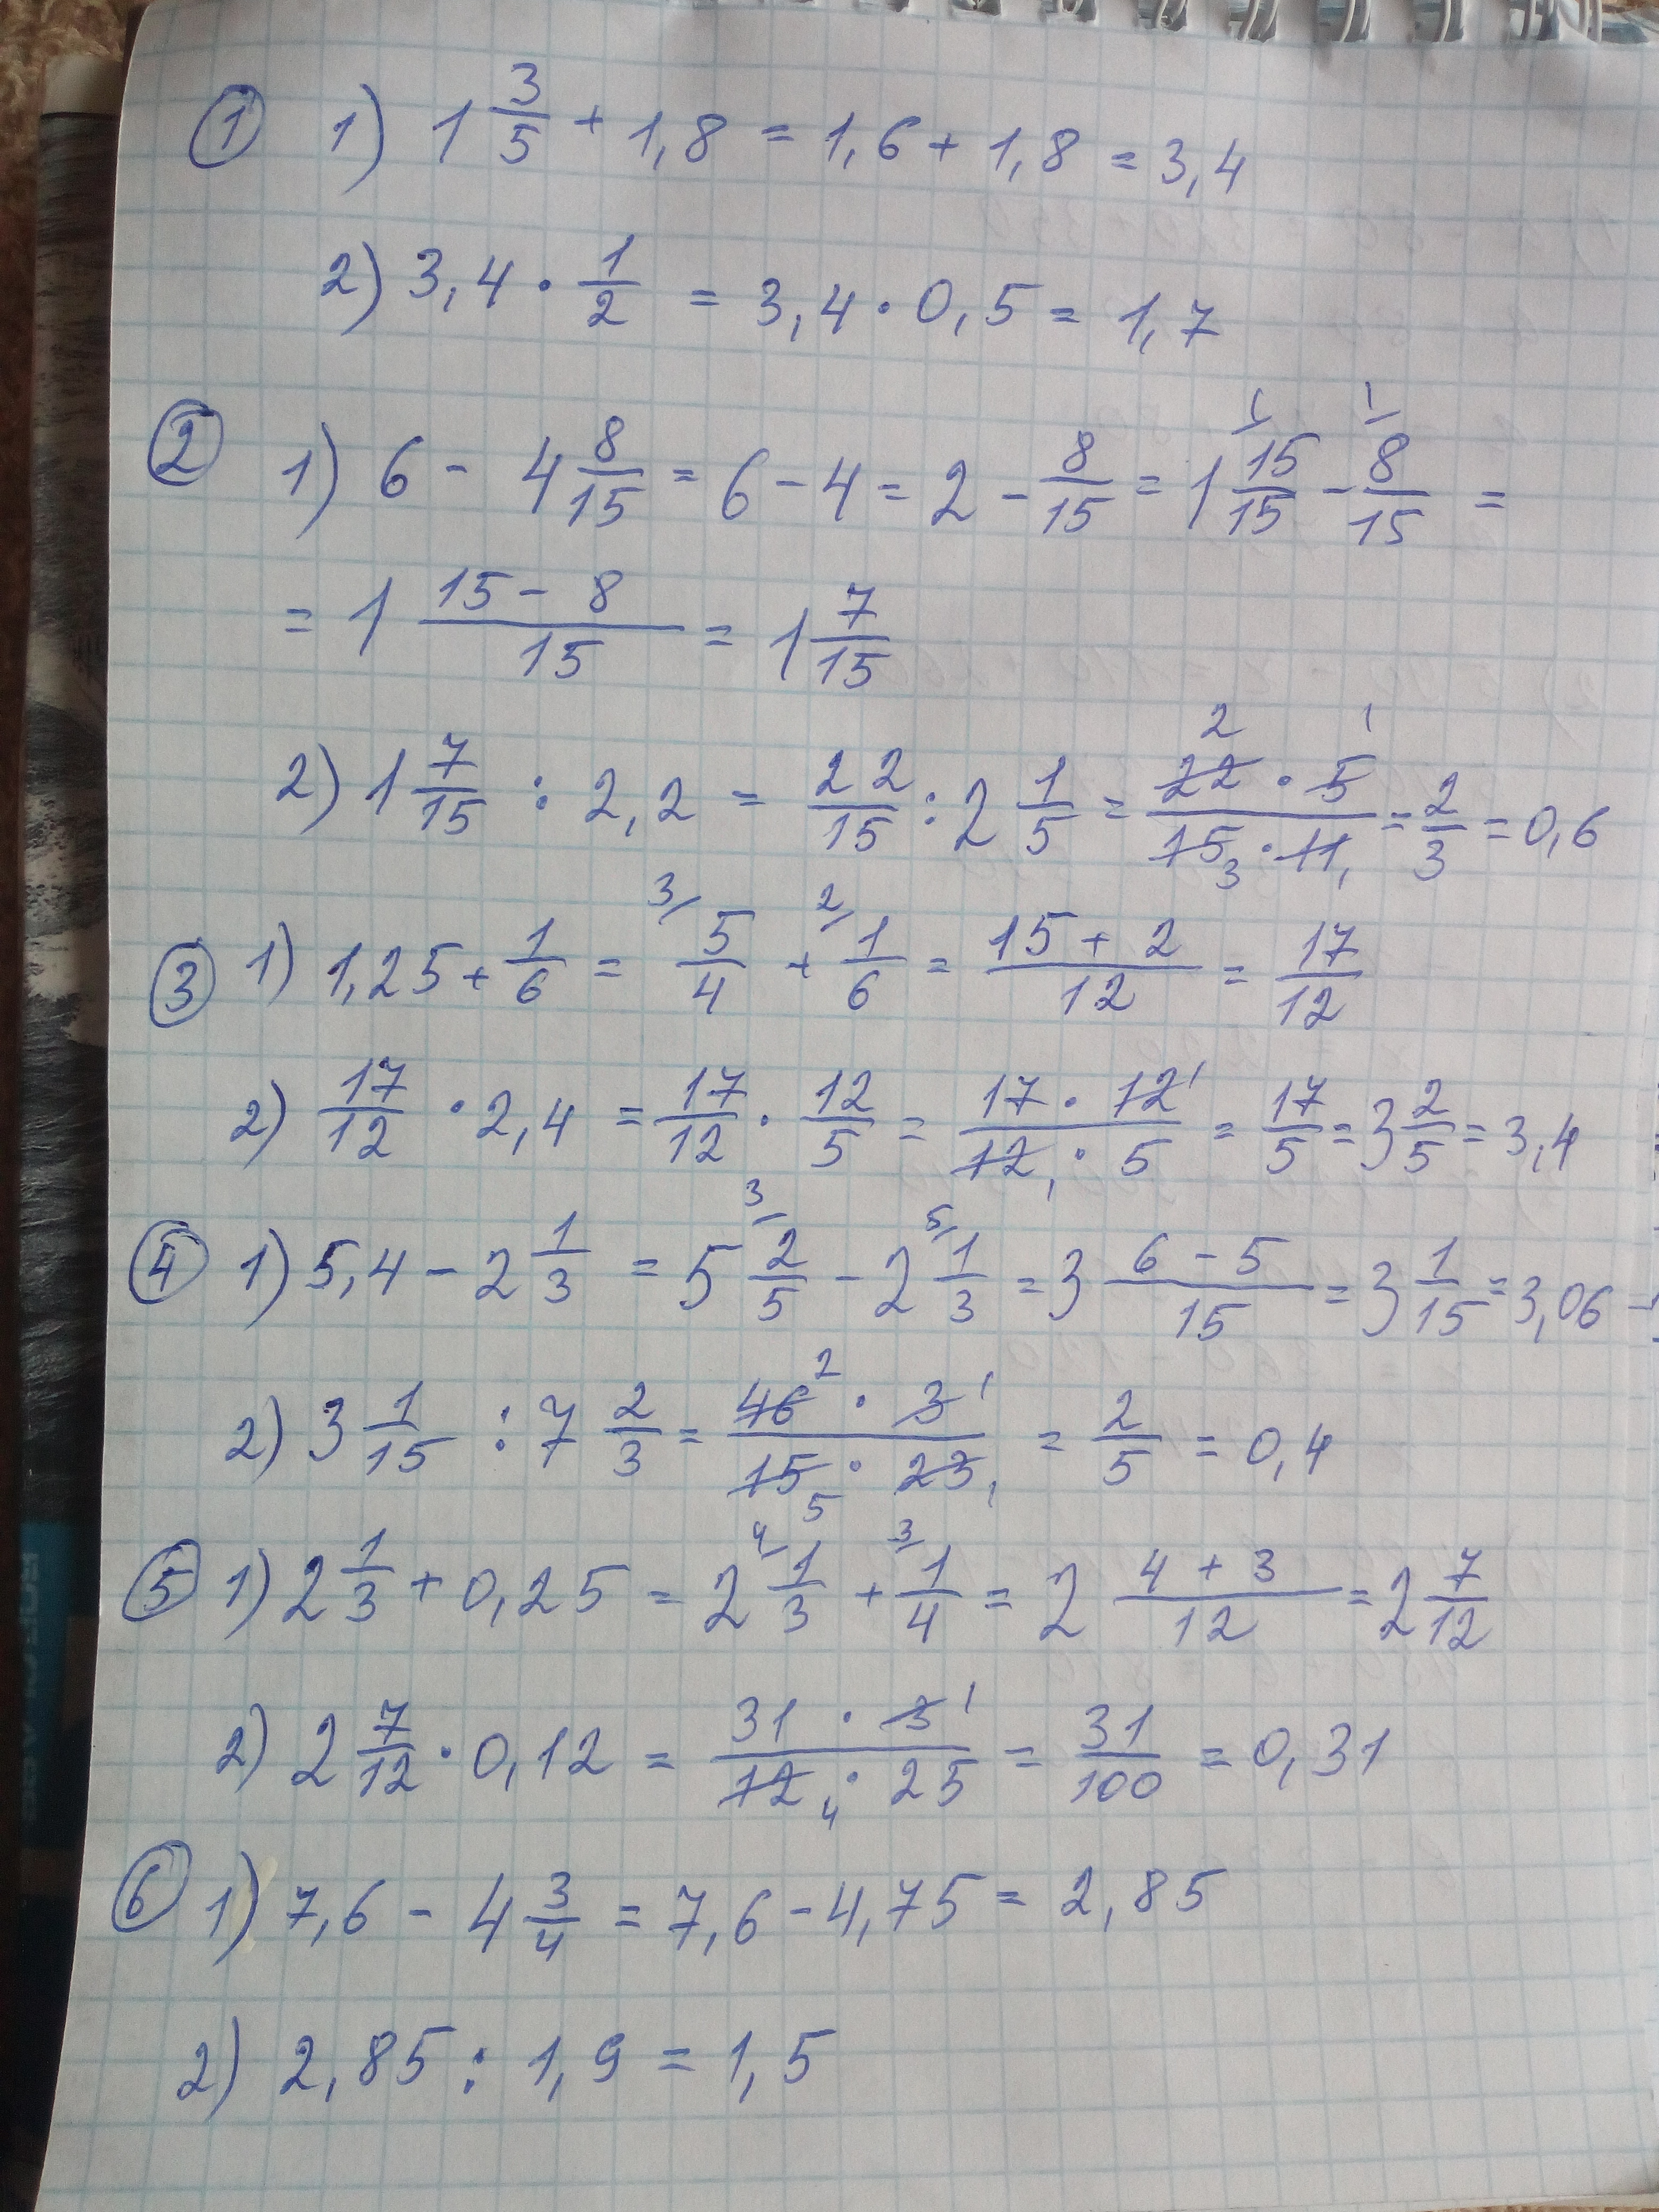 ① 1) 1 3/5 + 1,8 = 1,6 + 1,8 = 3,4
2) 3,4 · 1/2 = 3,4 · 0,5 = 1,7
② 1) 6 - 4 8/15 = 6 - 4 = 2 - 8/15 = 1 15/15 - 8/15 =
= 1 (15 - 8)/15 = 1 7/15
2) 1 7/15 : 2,2 = 22/15 : 2 1/5 = (22 · 5)/(15 · 11) = 2/3 = 0,6
③ 1) 1,25 + 1/6 = 5/4 + 1/6 = (15 + 2)/12 = 17/12
2) 17/12 · 2,4 = 17/12 · 12/5 = (17 · 12)/(12 · 5) = 17/5 = 3 2/5 = 3,4
④ 1) 5,4 - 2 1/3 = 5 2/5 - 2 1/3 = 3 (6 - 5)/15 = 3 1/15 = 3,06
2) 3 1/15 : 7 2/3 = (46 · 3)/(15 · 23) = 2/5 = 0,4
⑤ 1) 2 1/3 + 0,25 = 2 1/3 + 1/4 = 2 (4 + 3)/12 = 2 7/12
2) 2 7/12 · 0,12 = (31 · 3)/(12 · 25) = 31/100 = 0,31
⑥ 1) 7,6 - 4 3/4 = 7,6 - 4,75 = 2,85
2) 2,85 : 1,9 = 1,5